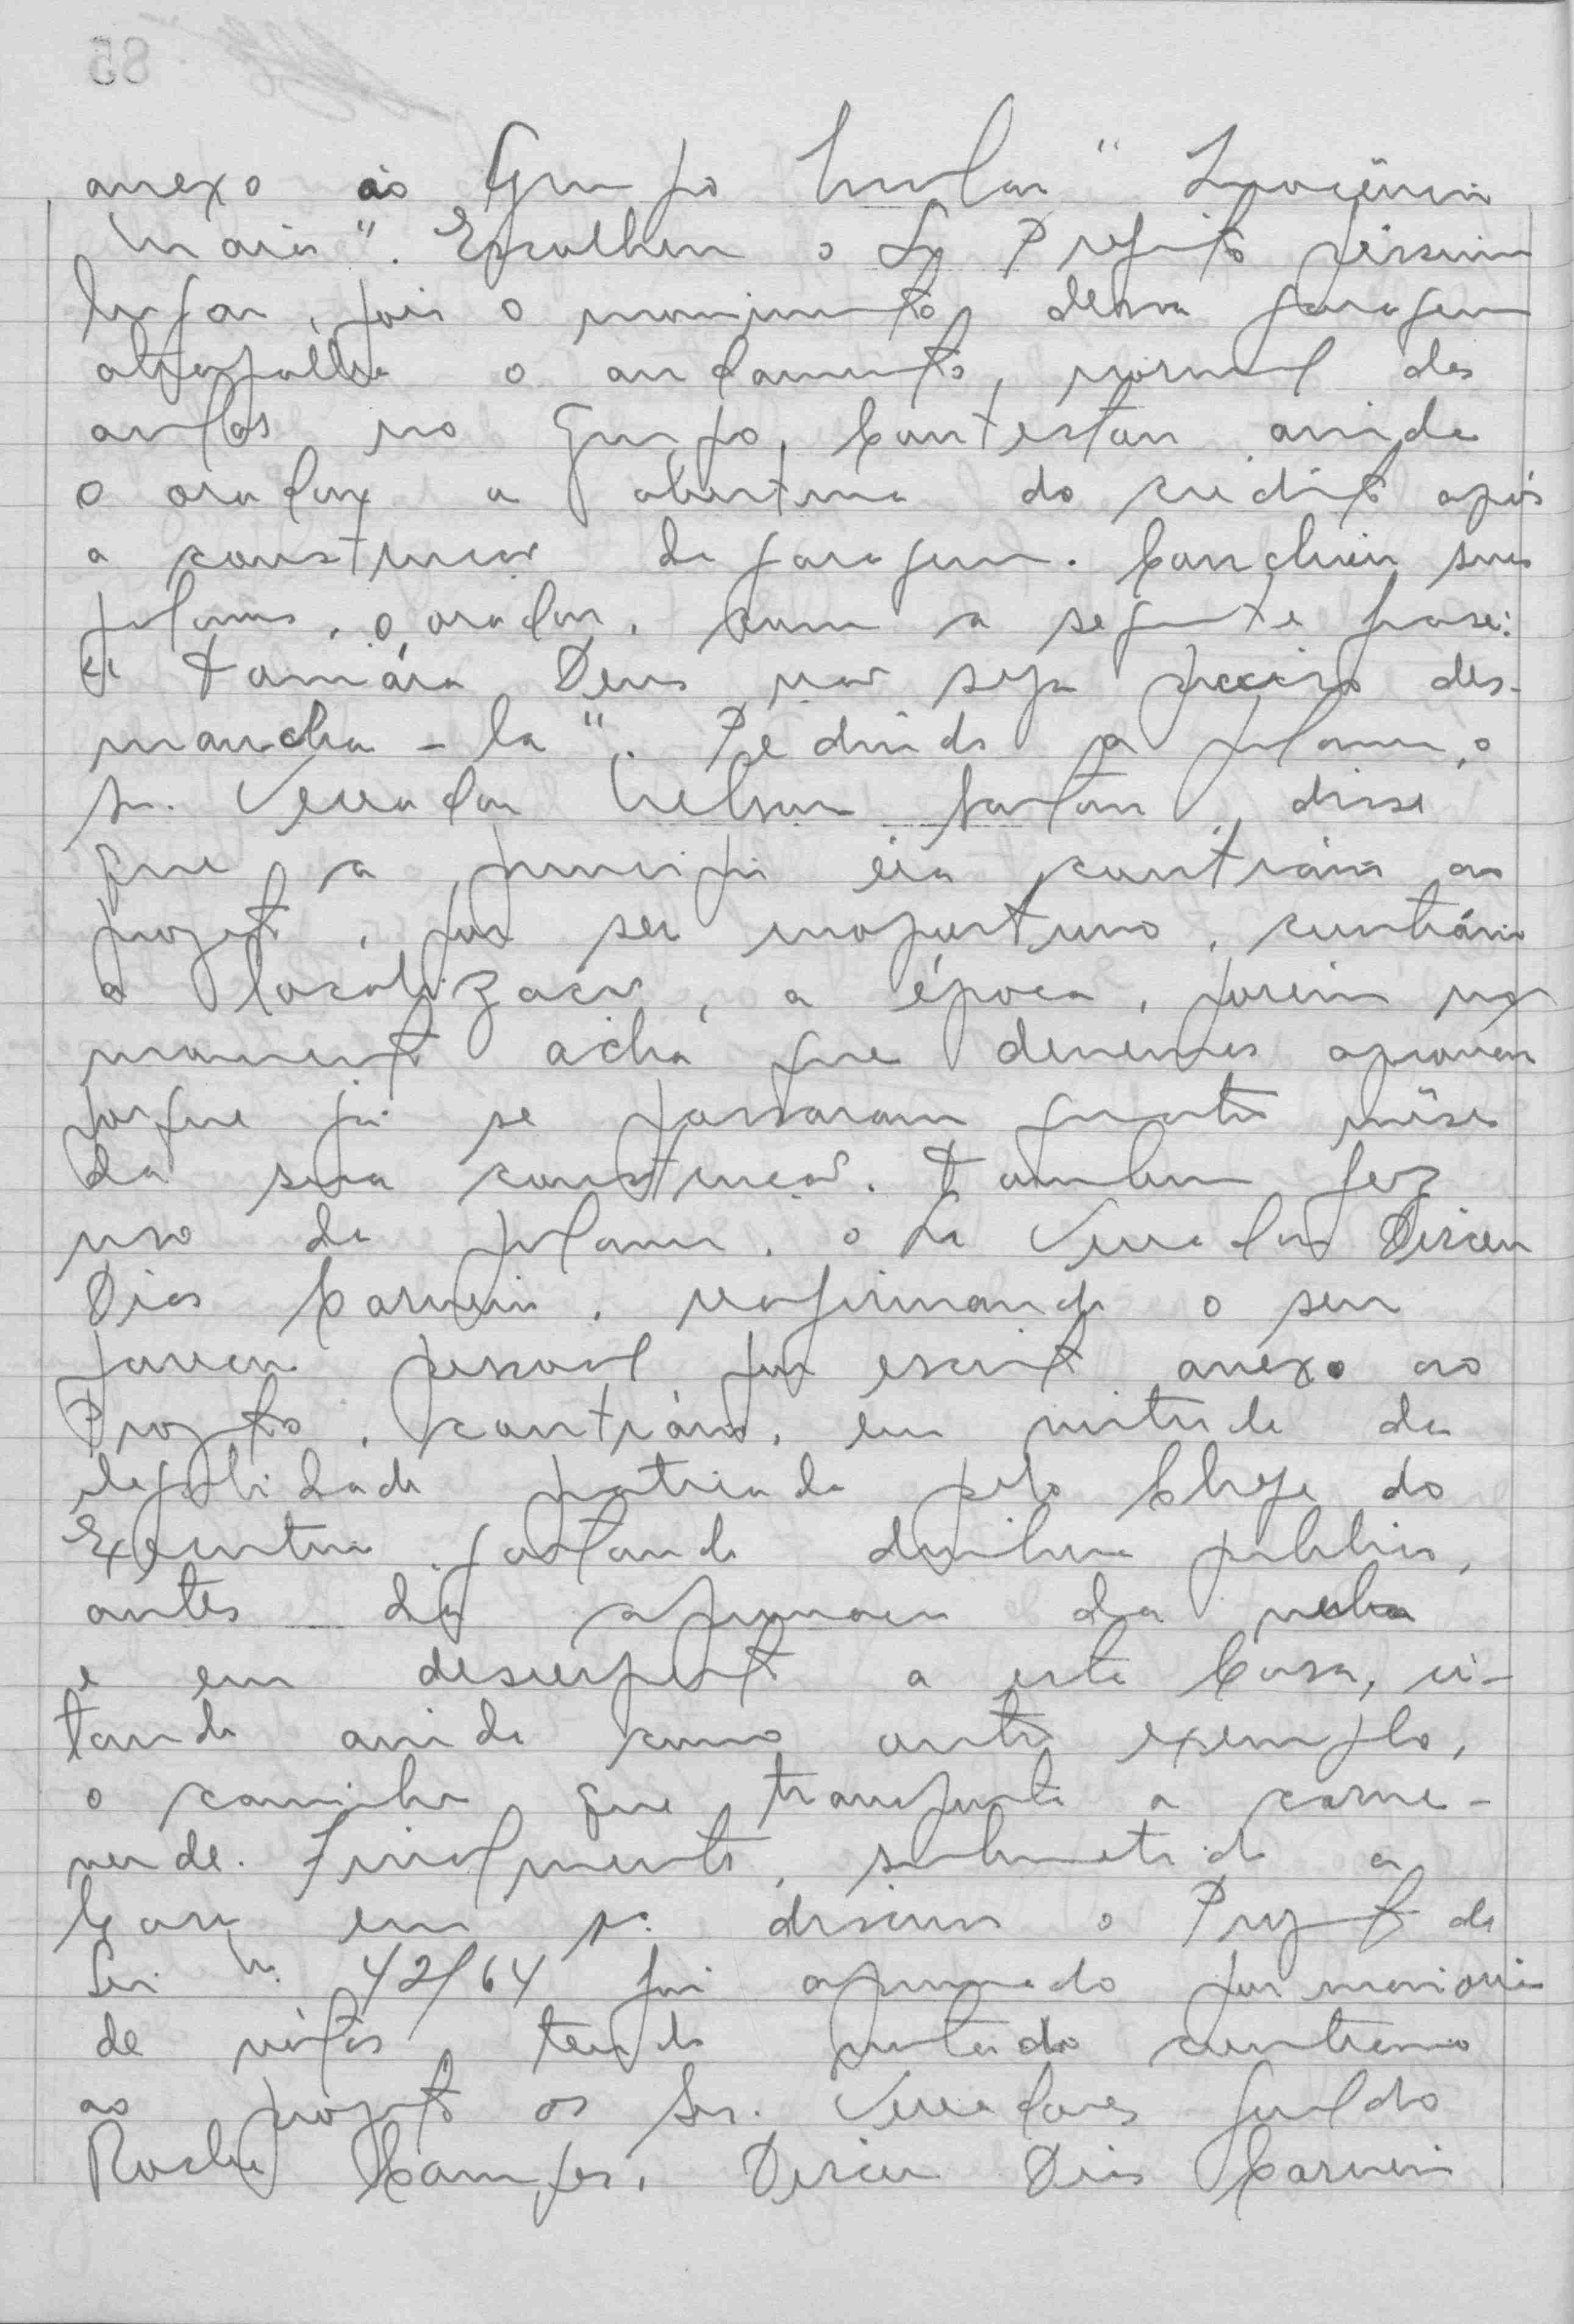 anexo ao Grupo Escolar "Inocêncio
Maia". Escolheu o Sr Prefeito péssimo
lugar, pois o movimento dessa garagem
atrapalha o andamento normal das
aulas no Grupo. Contestou ainda
o orador a abertura do crédito após
a construcão da garagem. Concluiu suas
palavras, o orador, com a seguinte frase:
"Tomára Deus não seja preciso des-
mancha-la". Pedindo a palavra, o
sr. Vereador Nelson disse
que a principio éra contrário ao
projeto, por ser inoportuno, contrário
a localização, a época, porém no
momento acha que devemos aprovar
porque já se passaram quatro mêses
da sua construcão. Tambem fez
uso da palavra, o Sr Vereador Dirceu
Dias Carneiro, reafirmando o seu
parecer pessoal por escrito anexo ao
Projeto, contrário, em virtude da
ilegalidade praticada pelo Chefe do
Executivo gastando dinheiro publico,
antes da aprovacão da verba
e em desrespeito a esta Casa, ci-
tando ainda como outro exemplo,
o caminhão que transporta a carne-
verde. Finalmente, submetido a
Casa em 1ª discussão o Projeto de
Lei n. 42/64 foi aprovado por maioria
de vótos, tendo votado contrario
ao projeto os Srs. Vereadores Geraldo
Rocha Campos, Dirceu Dias Carneiro